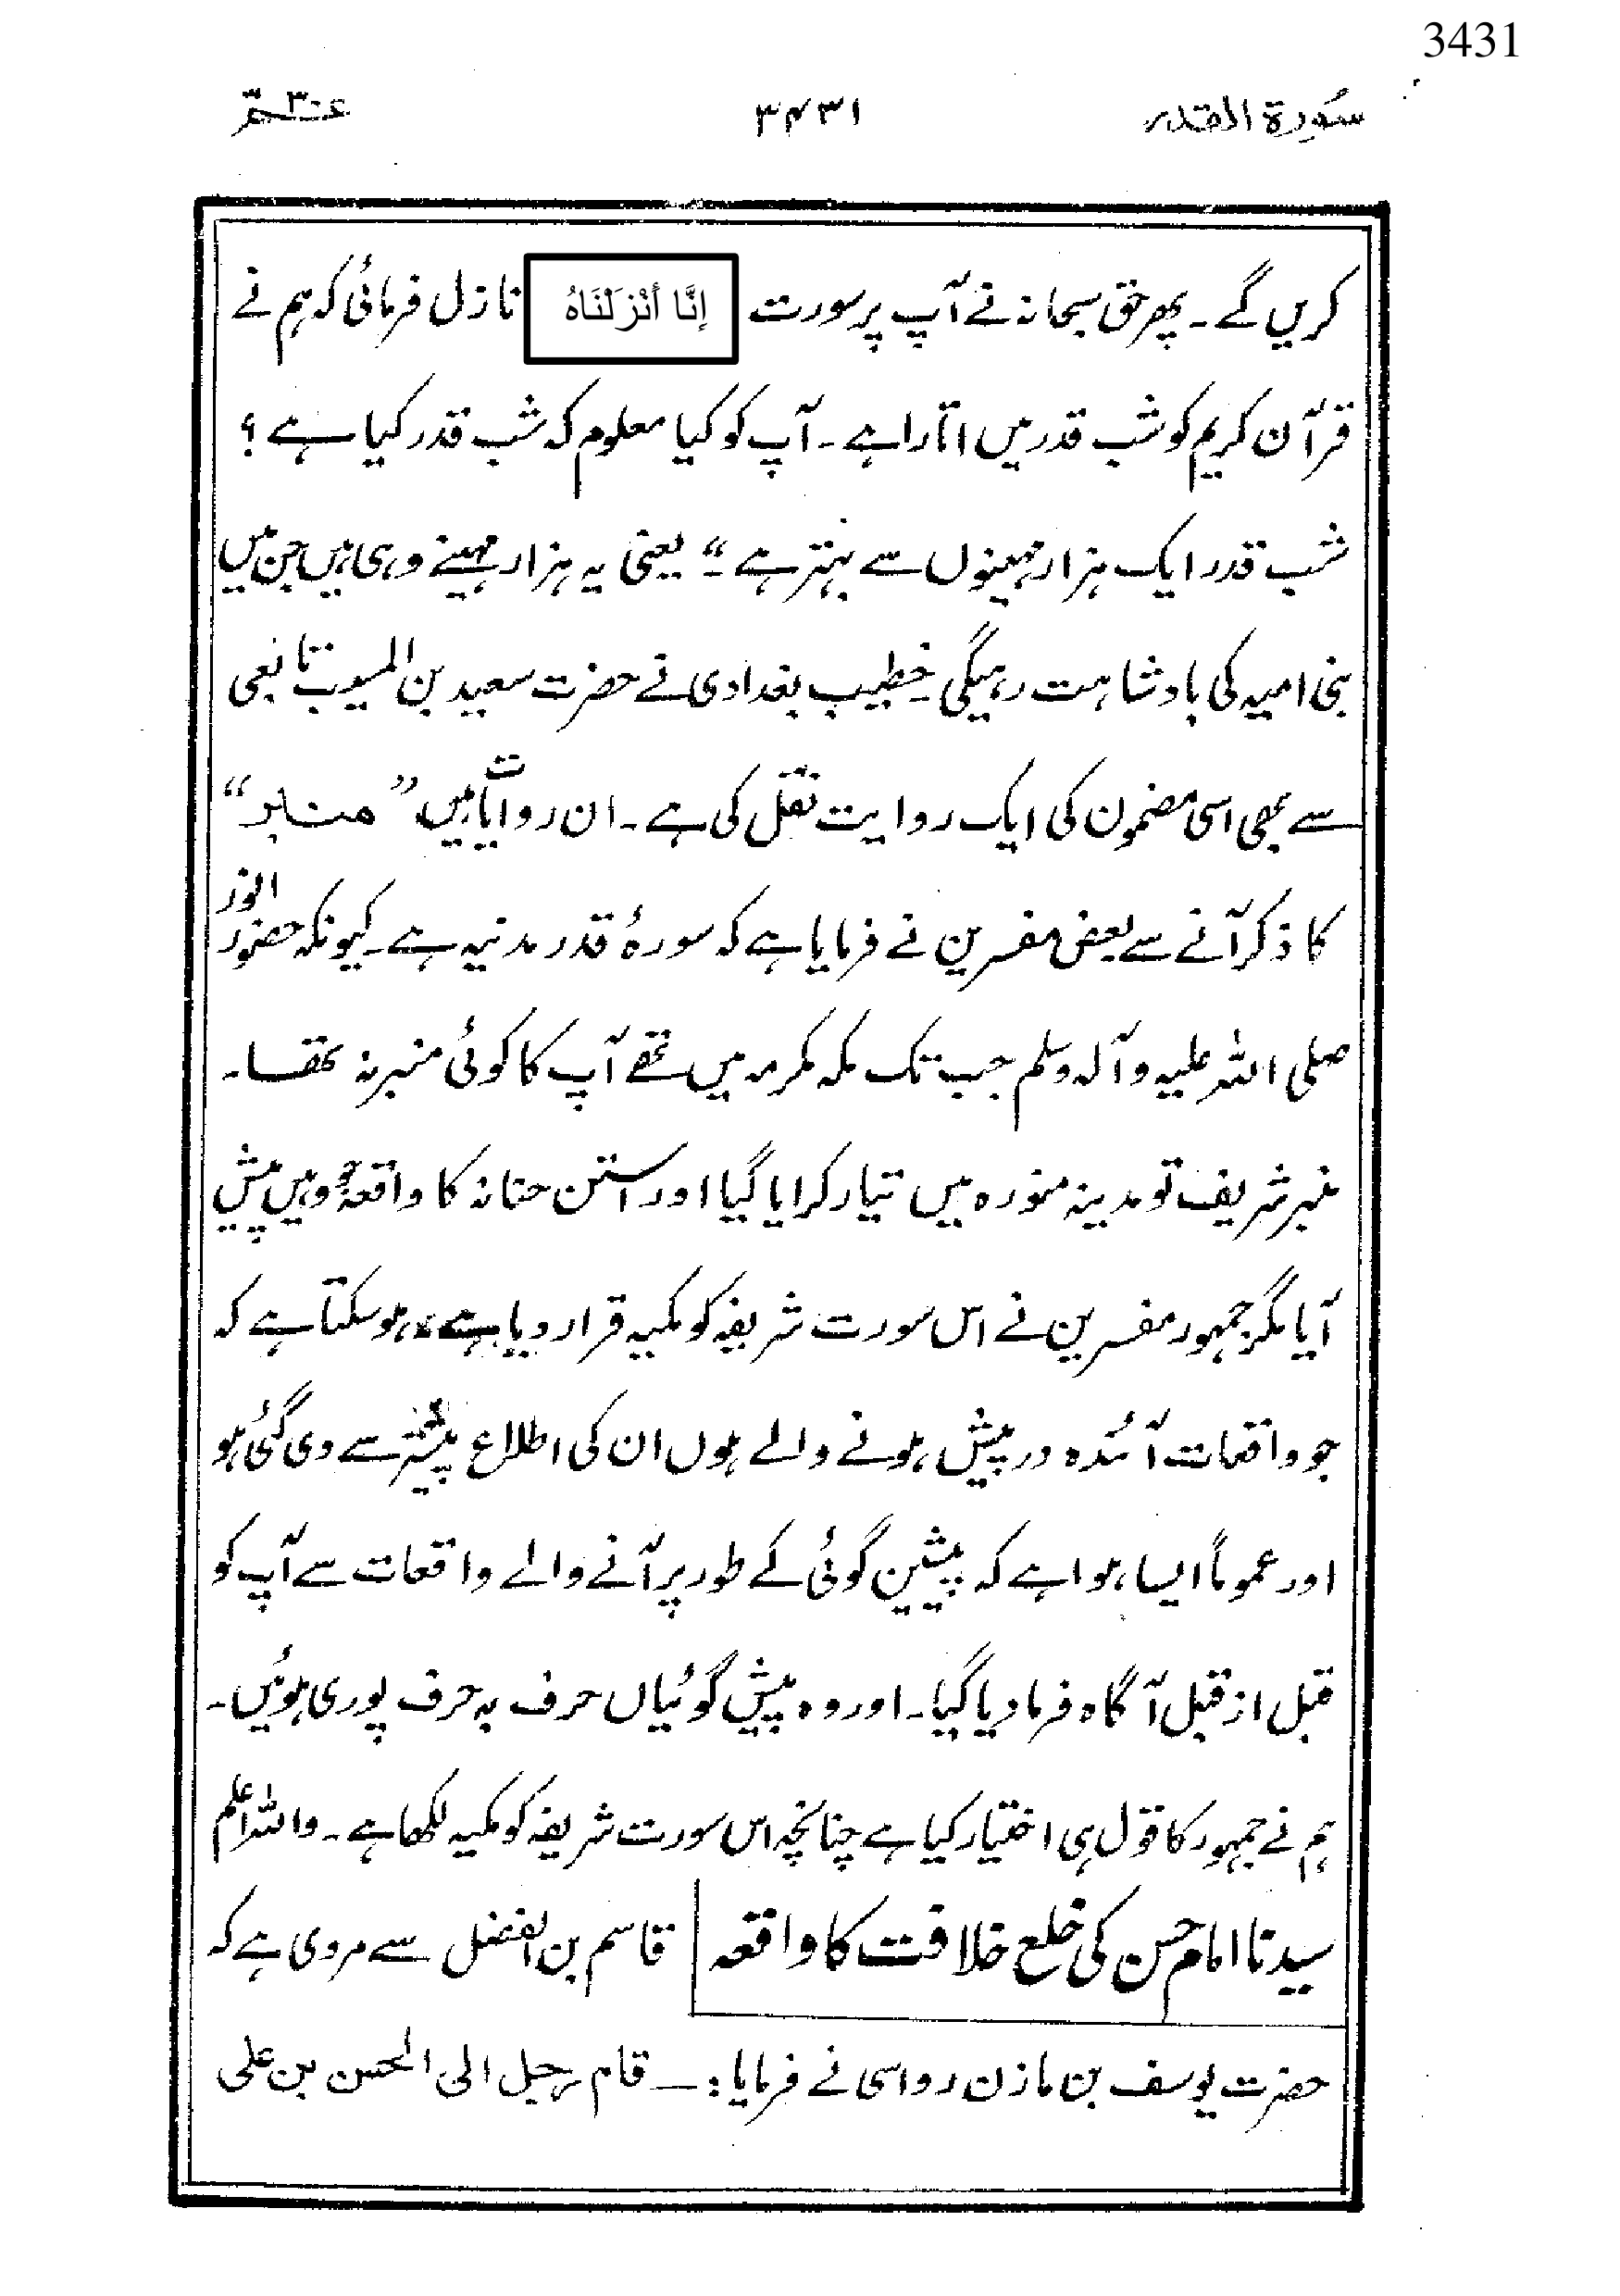 3431
سُورة القدر ۳۴۳۱ عمّ ۳۰
کریں گے ۔ پھر حق سبحانہ نے آپ پر سورت إِنَّا أَنْزَلْنَاهُ نازل فرمائی کہ ہم نے
قرآن کریم کو شب قدر میں اتارا ہے ۔ آپ کو کیا معلوم کہ شب قدر کیا ہے ؟
شب قدر ایک ہزار مہینوں سے بہتر ہے ۔“ یعنی یہ ہزار مہینے وہی ہیں جن میں
بنی امیہ کی بادشاہت رہیگی ۔ خطیب بغدادی نے حضرت سعید بن المسیوب تابعی
سے بھی اسی مضمون کی ایک روایت نقل کی ہے ۔ ان روایات میں ” منابر “
کا ذکر آنے سے بعض مفسرین نے فرمایا ہے کہ سورۂ قدر مدنیہ ہے ۔ کیونکہ حضور انور
صلی اللہ علیہ وآلہ وسلم جب تک مکہ مکرمہ میں تھے آپ کا کوئی منبر نہ تھا ۔
منبر شریف تو مدینہ منورہ میں تیار کرایا گیا اور استن حنانہ کا واقعہ وہیں پیش
آیا مگر جمہور مفسرین نے اس سورت شریفہ کو مکیہ قرار دیا ہے ، ہو سکتا ہے کہ
جو واقعات آئندہ درپیش ہونے والے ہوں ان کی اطلاع پیشتر سے دی گئی ہو
اور عموماً ایسا ہوا ہے کہ پیشین گوئی کے طور پر آنے والے واقعات سے آپ کو
قبل از قبل آگاہ فرما دیا گیا ۔ اور وہ پیش گوئیاں حرف بہ حرف پوری ہوئیں ۔
ہم نے جمہور کا قول ہی اختیار کیا ہے چنانچہ اس سورت شریفہ کو مکیہ لکھا ہے ۔ واللہ اعلم
سیدنا امام حسن کی خلع خلافت کا واقعہ قاسم بن الفضل سے مروی ہے کہ
حضرت یوسف بن مازن رواسی نے فرمایا : ـــ قام رجل الی الحسن بن علی